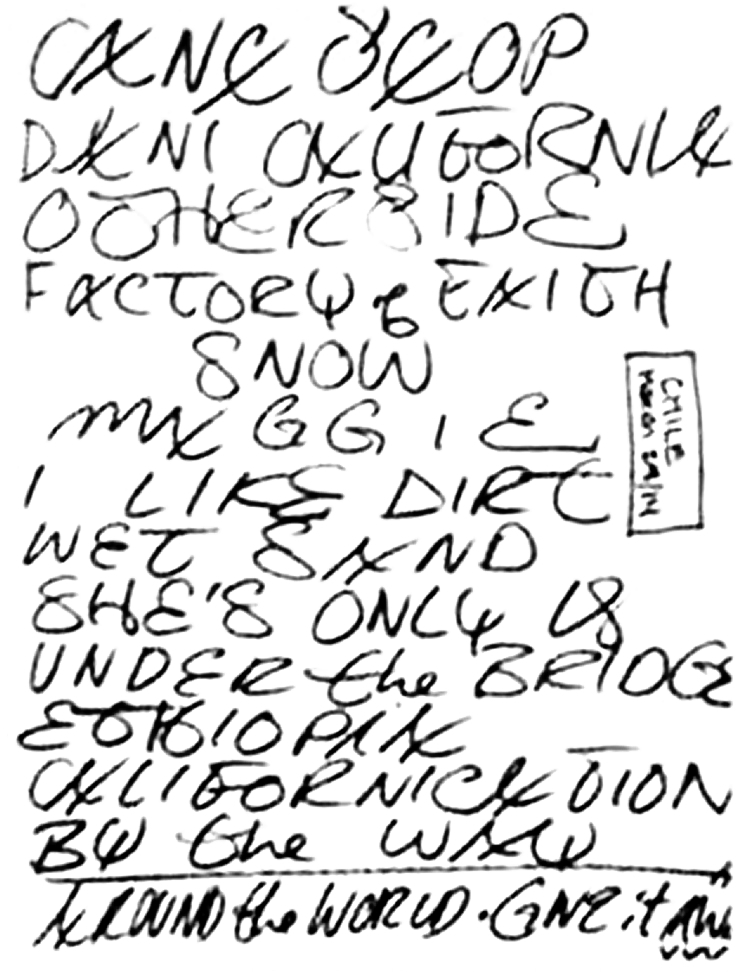 CAN'T STOP
DANI CALIFORNIA
OTHERSIDE
FACTORY of FAITH
SNOW
CHILE
MAGGIE
I LIKE DIRT
WET SAND
SHE'S ONLY 18
UNDER the BRIDGE
ETHIOPIA
CALIFORNICATION
BY the WAY
AROUND the WORLD. GIVE it AWAY